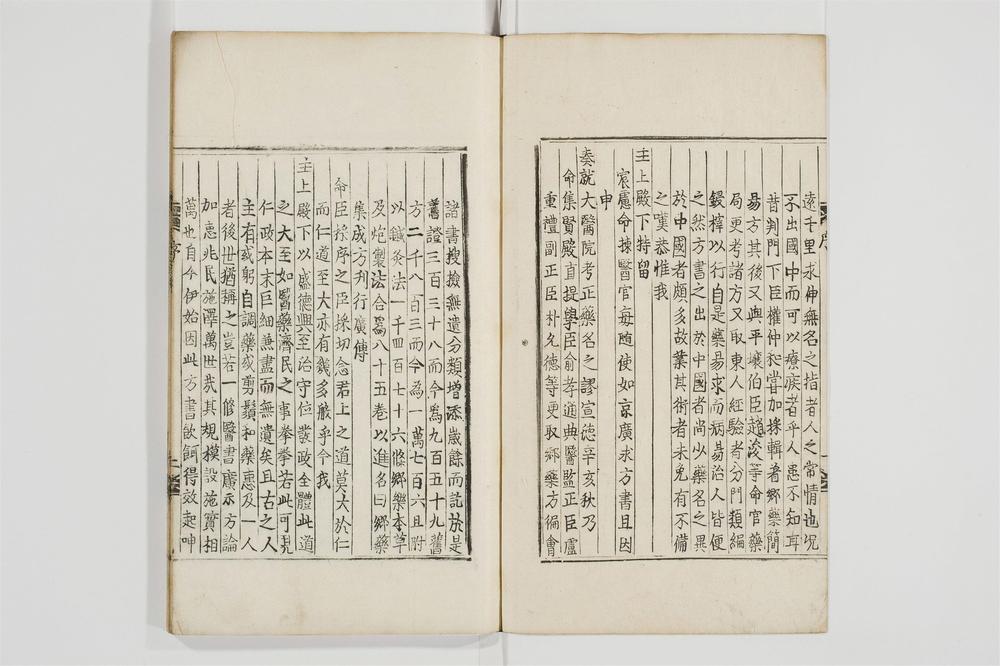 遠千里求伸無名之指者人之常情也況
不出國中而可以療疾者乎人患不知耳
昔判門下臣權仲和嘗加採輯著鄉藥簡
易方其後又與平壤伯臣趙浚等命官藥
局更考諸方又取東人經驗者分門類編
鋟梓以行自是藥易求而病易治人皆便
之然方書之出於中國者尚少藥名之異
於中國者頗多故業其術者未免有不備
之嘆恭惟我
主上殿下特留
宸慮命揀醫官每隨使如京廣求方書且因
申
奏就大醫院考正藥名之謬宣德辛亥秋乃
命集賢殿直提學臣俞孝通典醫監正臣盧
重禮副正臣朴允德等更取鄉藥方徧會
諸書搜撿無遺分類增添歲餘而訖於是
舊證三百三十八而今爲九百五十九舊
方二千八百三而今爲一萬七百六且附
以鍼灸法一千四百七十六條鄉樂本草
及炮製法合爲八十五卷以進名曰鄉藥
集成方刋行廣傳
命臣採序之臣採切念君上之道莫大於仁
而仁道至大亦有幾多般乎今我
主上殿下以盛德興至治守位發政全體此道
之大至如醫藥濟民之事拳拳若此可見
仁政本末巨細兼盡而無遺矣且古之人
主有或躬自調藥或剪鬚和藥惠及一人
者後世猶稱之豈若一修醫書廣示方論
加惠兆民施澤萬世哉其規模設施實相
萬也自今伊始因此方書飲餌得效起呻
序
序